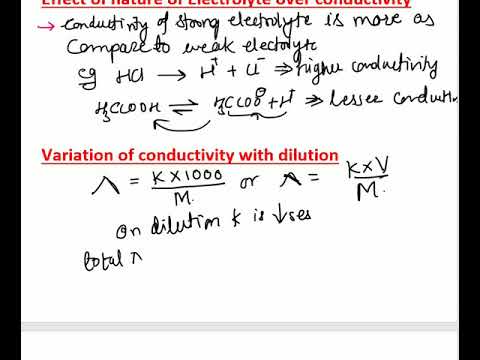 Effect of nature of Electrolyte over conductivity
→ Conductivity of strong electrolyte is more as
Compare to weak electrolyte
eg HCl → H⁺ + Cl⁻ ⇒ higher conductivity
H₃CCOOH ⇌ H₃CCOO⊖ + H⁺ ⇒ lesser conduct
Variation of conductivity with dilution
Λ = K×1000/M. or Λ = K×V/M.
on dilution K is ↓ses
total